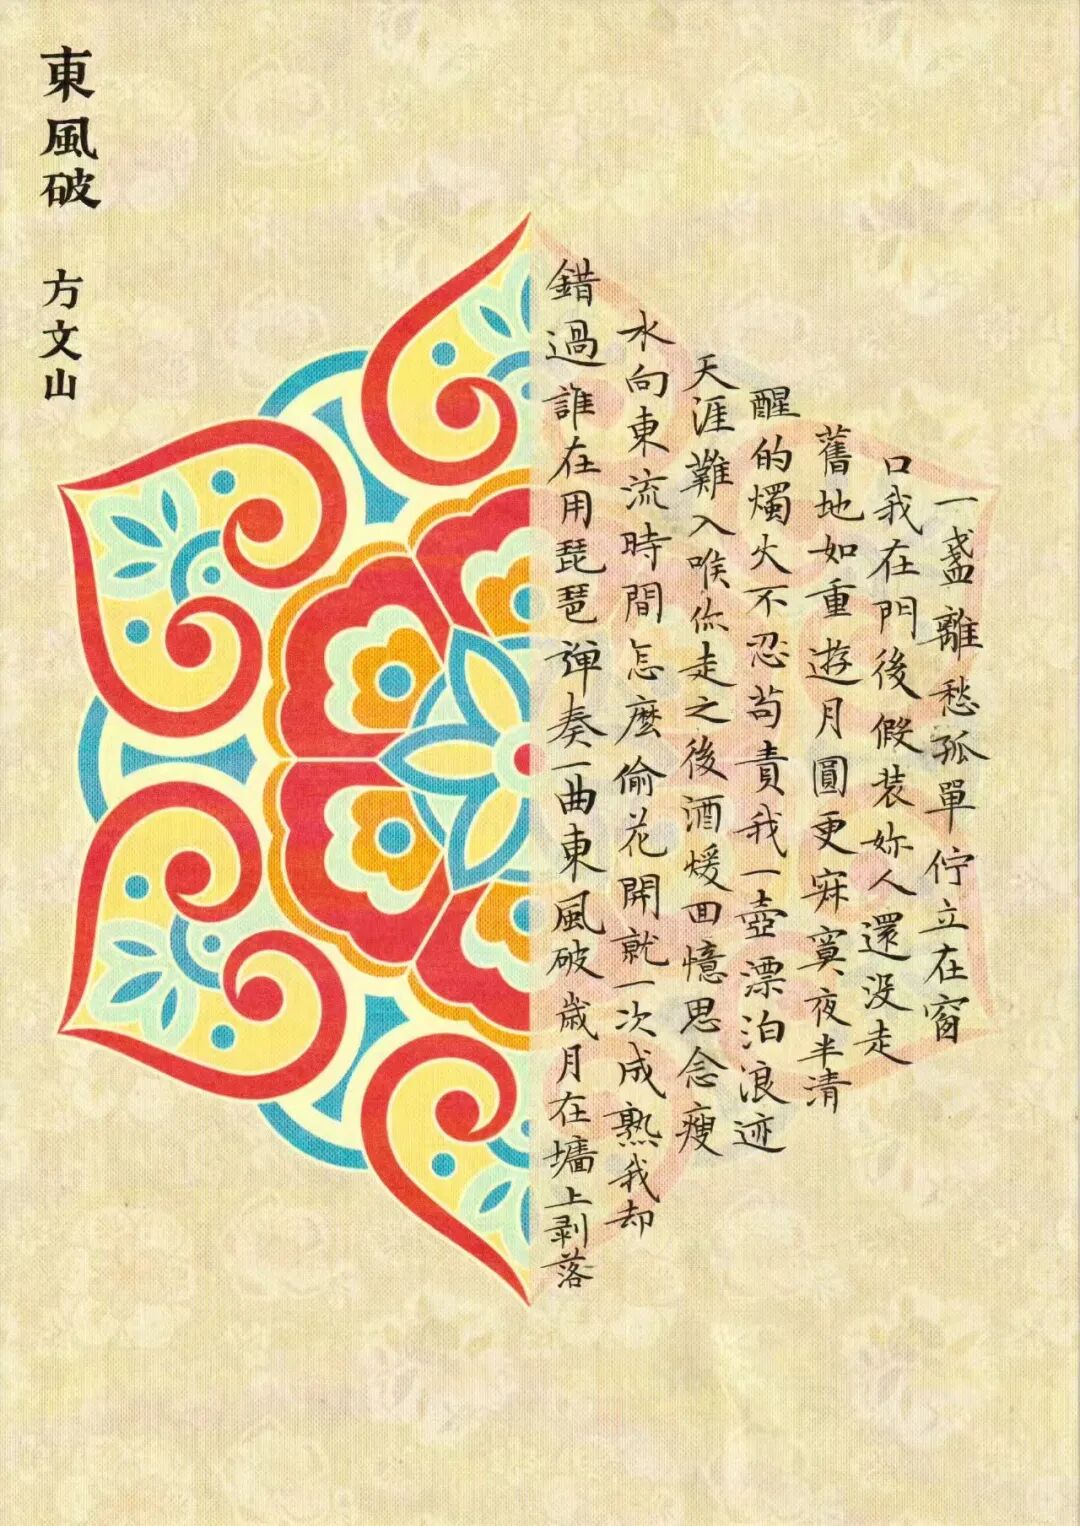 一盞離愁孤單佇立在窗
口我在門後假装妳人還没走
舊地如重遊月圓更寂寞夜半清
醒的燭火不忍苛責我一壺漂泊浪迹
天涯難入喉你走之後酒煖回憶思念瘦
水向東流時間怎麼偷花開就一次成熟我却
錯過誰在用琵琶弹奏一曲東風破歲月在墻上剥落
東風破 方文山